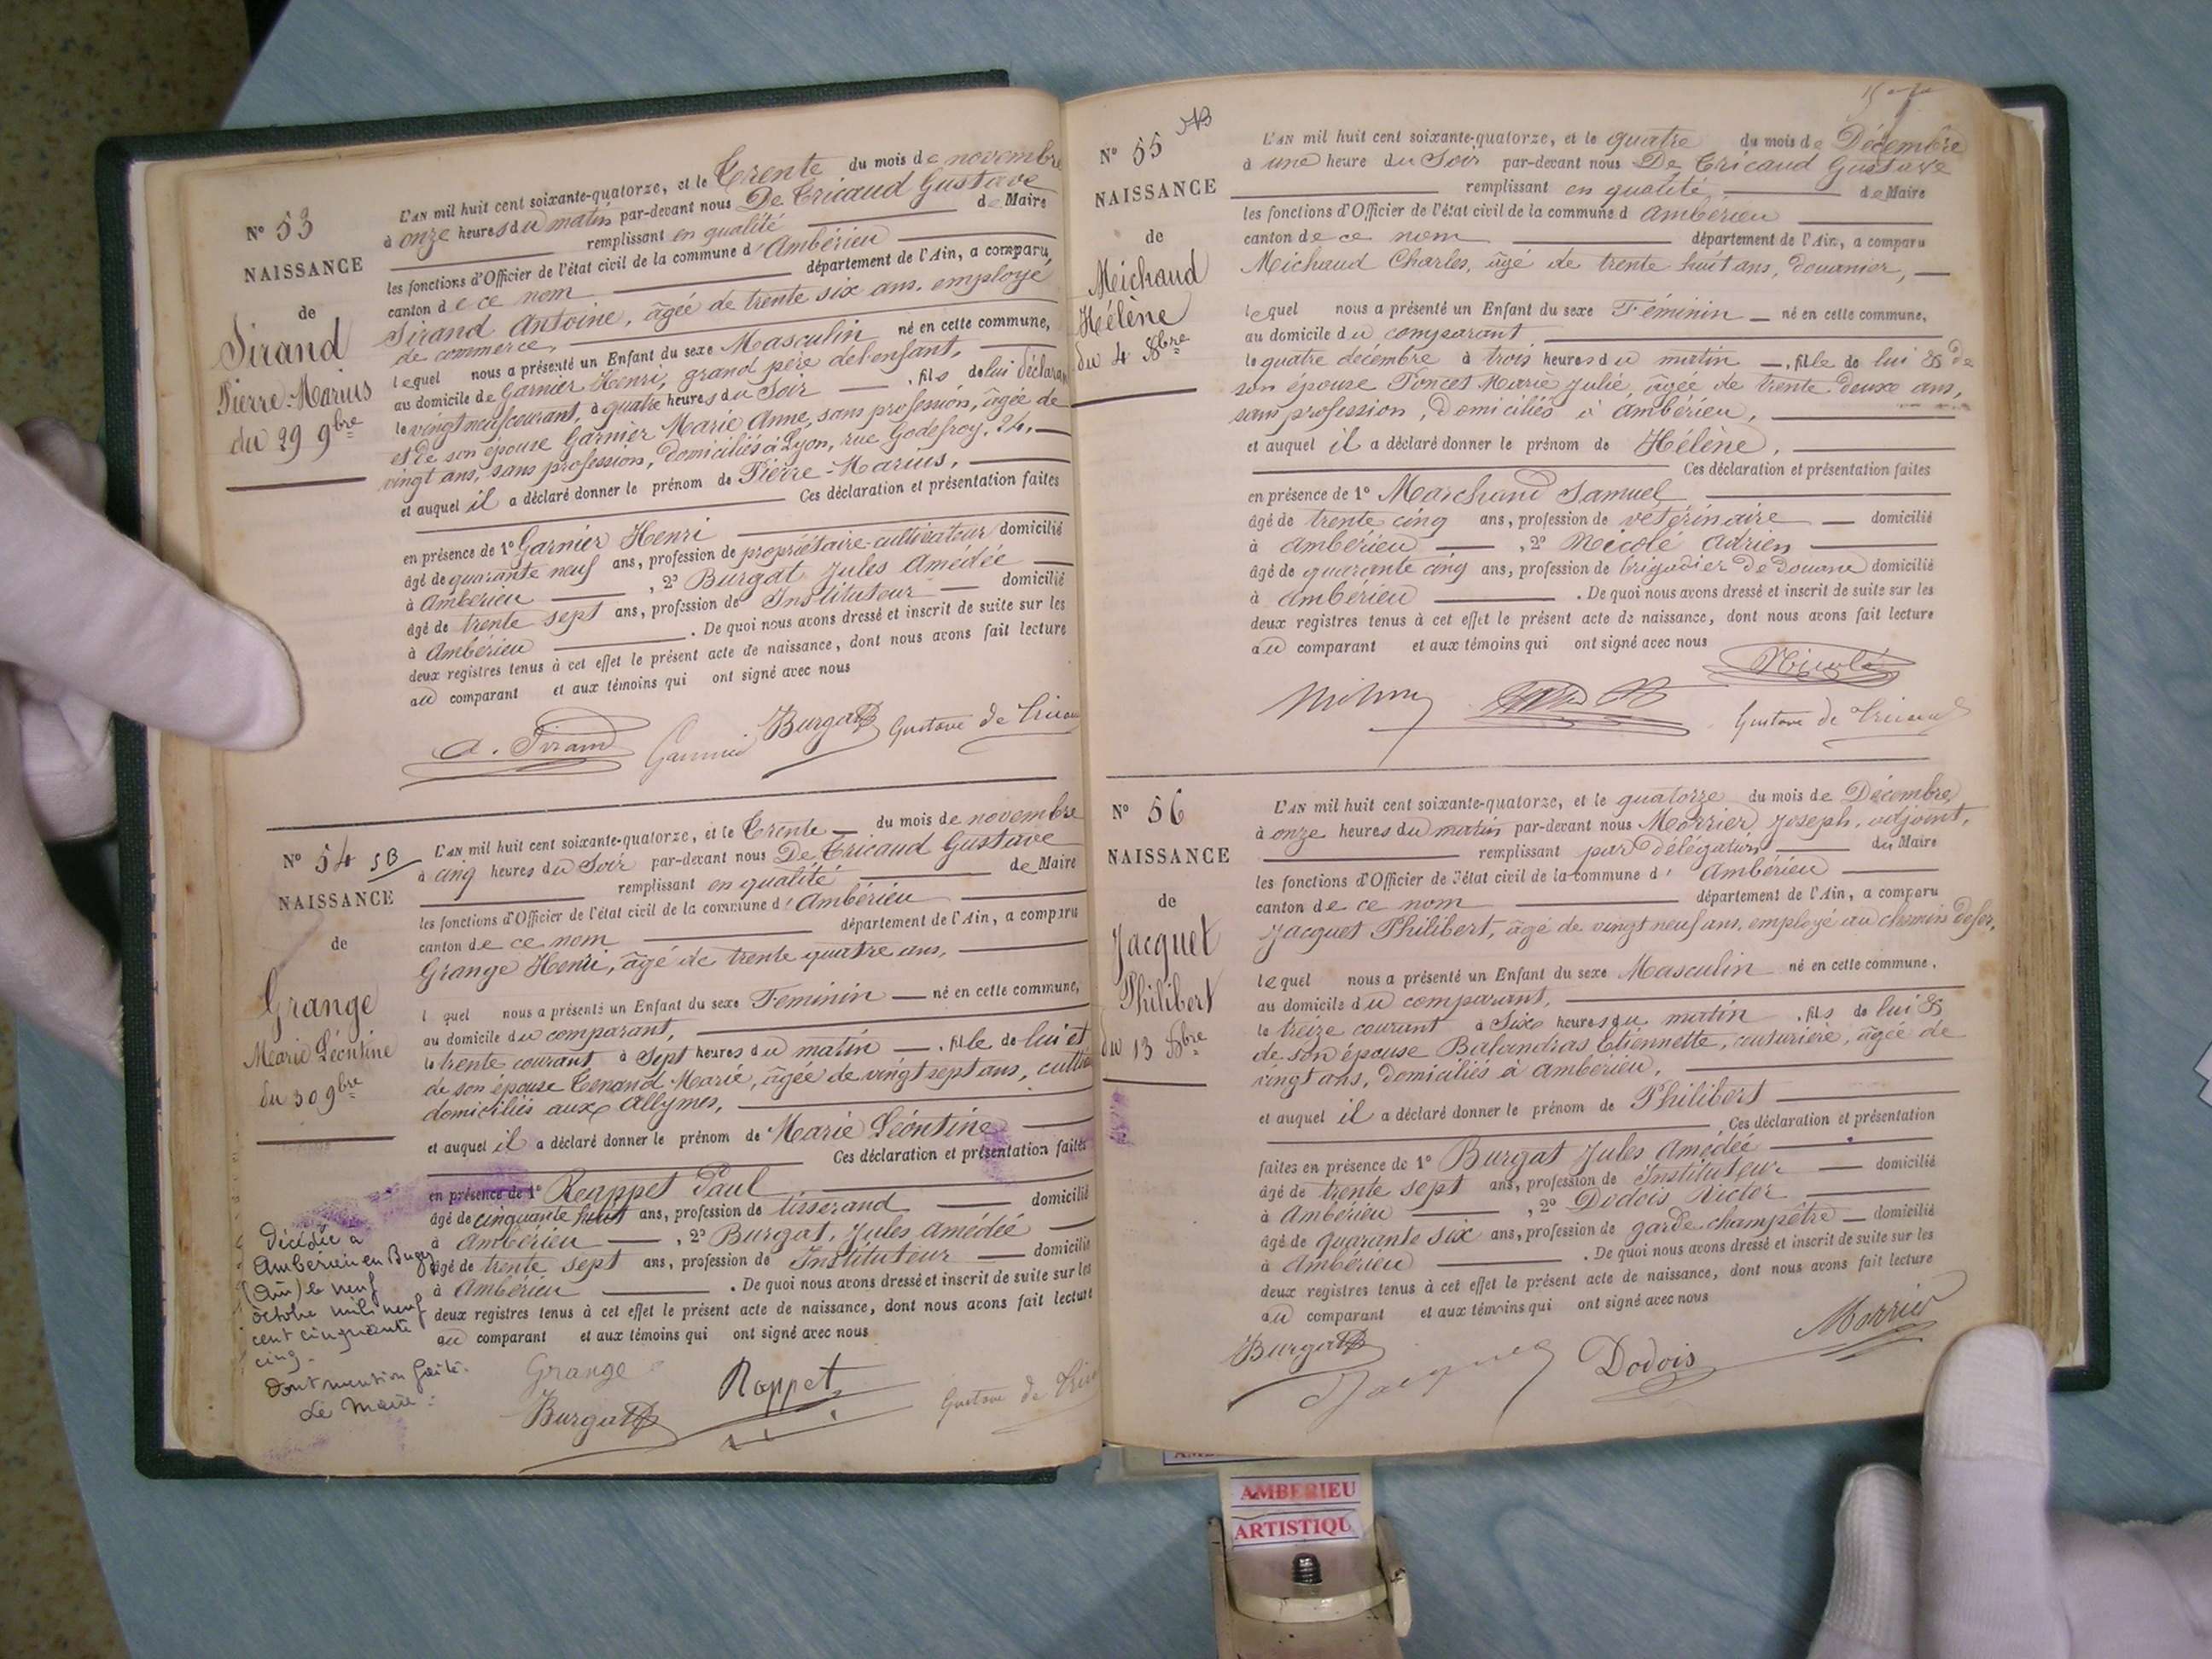 N° 53
NAISSANCE
de
Sirand
Pierre-Marius
du 29 9bre
L'AN mil huit cent soixante-quatorze, et le Trente du mois de novembre
à onze heures du matin par-devant nous De Tricaud Gustave
remplissant en qualité de Maire
les fonctions d'Officier de l'état civil de la commune d'Ambérieu
canton de ce nom département de l'Ain, a comparu,
Sirand Antoine, âgée de trente six ans, employé
de commerce,
lequel nous a présenté un Enfant du sexe Masculin né en cette commune,
au domicile de Garnier Henri, grand père de l'enfant,
le vingt neuf courant, à quatre heures du Soir , fils de lui déclarant
et de son épouse Garnier Marie Anne, sans profession, âgée de
vingt ans, sans profession, domiciliés à Lyon, rue Godefroy, 24,
et auquel il a déclaré donner le prénom de Pierre-Marius,
Ces déclaration et présentation faites
en présence de 1° Garnier Henri
âgé de quarante neuf ans, profession de propriétaire-cultivateur domicilié
à Ambérieu , 2° Burgat Jules Amédée
âgé de trente sept ans, profession de Instituteur domicilié
à Ambérieu . De quoi nous avons dressé et inscrit de suite sur les
deux registres tenus à cet effet le présent acte de naissance, dont nous avons fait lecture
au comparant et aux témoins qui ont signé avec nous
A. Sirand Garnier Burgat Gustave de Tricaud
N° 54
NAISSANCE
de
Grange
Marie Léontine
du 30 9bre
L'AN mil huit cent soixante-quatorze, et le Trente du mois de novembre
à cinq heures du Soir par-devant nous De Tricaud Gustave
remplissant en qualité de Maire
les fonctions d'Officier de l'état civil de la commune d'Ambérieu
canton de ce nom département de l'Ain, a comparu
Grange Henri, âgé de trente quatre ans,
l quel nous a présenté un Enfant du sexe Feminin né en cette commune,
au domicile du comparant,
le trente courant à Sept heures du matin , fille de lui et
de son épouse Tenand Marie, âgée de vingt sept ans,
domiciliés aux Allymes,
et auquel il a déclaré donner le prénom de Marie Léontine
Ces déclaration et présentation faites
en présence de 1° Rappet Paul
âgé de cinquante huit ans, profession de tisserand domicilié
à Ambérieu , 2° Burgat, Jules Amédée
âgé de trente sept ans, profession de Instituteur domicilié
à Ambérieu . De quoi nous avons dressé et inscrit de suite sur les
deux registres tenus à cet effet le présent acte de naissance, dont nous avons fait lecture
au comparant et aux témoins qui ont signé avec nous
Grange Rappet Gustave de
Burgat
Décédée à
Ambérieu en Bugey
(Ain) le neuf
octobre mil neuf
cent cinquante
cinq.
Dont mention faite.
Le Maire:
N° 55
NAISSANCE
de
Michaud
Hélène
du 4 Xbre
L'AN mil huit cent soixante-quatorze, et le quatre du mois de Décembre
à une heure du Soir par-devant nous De Tricaud Gustave
remplissant en qualité de Maire
les fonctions d'Officier de l'état civil de la commune d Ambérieu
canton de ce nom département de l'Ain, a comparu
Michaud Charles, âgé de trente huit ans, douanier,
lequel nous a présenté un Enfant du sexe Féminin né en cette commune,
au domicile du comparant
le quatre décembre à trois heures du matin , fille de lui & de
son épouse Poncet Marie Julie, âgée de trente-deux ans,
sans profession, domiciliés à Ambérieu,
et auquel il a déclaré donner le prénom de Hélène,
Ces déclaration et présentation faites
en présence de 1° Marchand Samuel
âgé de trente cinq ans, profession de vétérinaire domicilié
à Ambérieu , 2° Nicolé Adrien
âgé de quarante cinq ans, profession de brigadier de Douane domicilié
à Ambérieu . De quoi nous avons dressé et inscrit de suite sur les
deux registres tenus à cet effet le présent acte de naissance, dont nous avons fait lecture
au comparant et aux témoins qui ont signé avec nous
Nicolé
Gustave de Tricaud
N° 56
NAISSANCE
de
Jacquet
Philibert
du 13 Xbre
L'AN mil huit cent soixante-quatorze, et le quatorze du mois de Décembre
à onze heures du matin par-devant nous Morrier, Joseph, adjoint,
remplissant par délégation du Maire
les fonctions d'Officier de l'état civil de la commune d' Ambérieu
canton de ce nom département de l'Ain, a comparu
Jacquet Philibert, âgé de vingt neuf ans, employé au chemin de fer,
lequel nous a présenté un Enfant du sexe Masculin né en cette commune,
au domicile du comparant,
le treize courant à Six heures du matin , fils de lui &
de son épouse Balandras Etiennette, couturière, âgée de
vingt ans, domiciliés à Ambérieu,
et auquel il a déclaré donner le prénom de Philibert
Ces déclaration et présentation
faites en présence de 1° Burgat Jules Amédée
âgé de trente sept ans, profession de Instituteur domicilié
à Ambérieu , 2° Dodois Victor
âgé de quarante six ans, profession de garde-champêtre domicilié
à Ambérieu . De quoi nous avons dressé et inscrit de suite sur les
deux registres tenus à cet effet le présent acte de naissance, dont nous avons fait lecture
au comparant et aux témoins qui ont signé avec nous
Burgat Jacquet Dodois Morrier
AMBERIEU
ARTISTIQU